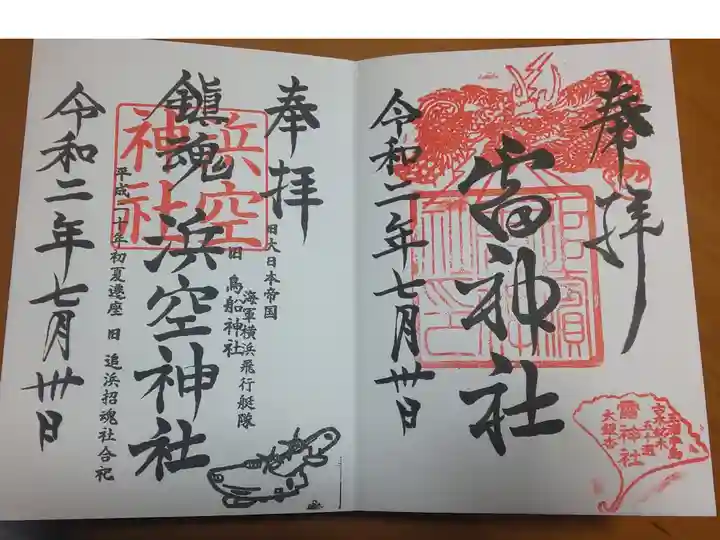 奉拝
雷神社
令和二年七月卅日
雷神社
奉拝
旧大日本帝国
海軍横浜飛行艇隊
旧 鳥船神社
鎮魂 浜空神社
浜空
神社
平成二十年初夏遷座 旧 追浜招魂社合祀
令和二年七月卅日